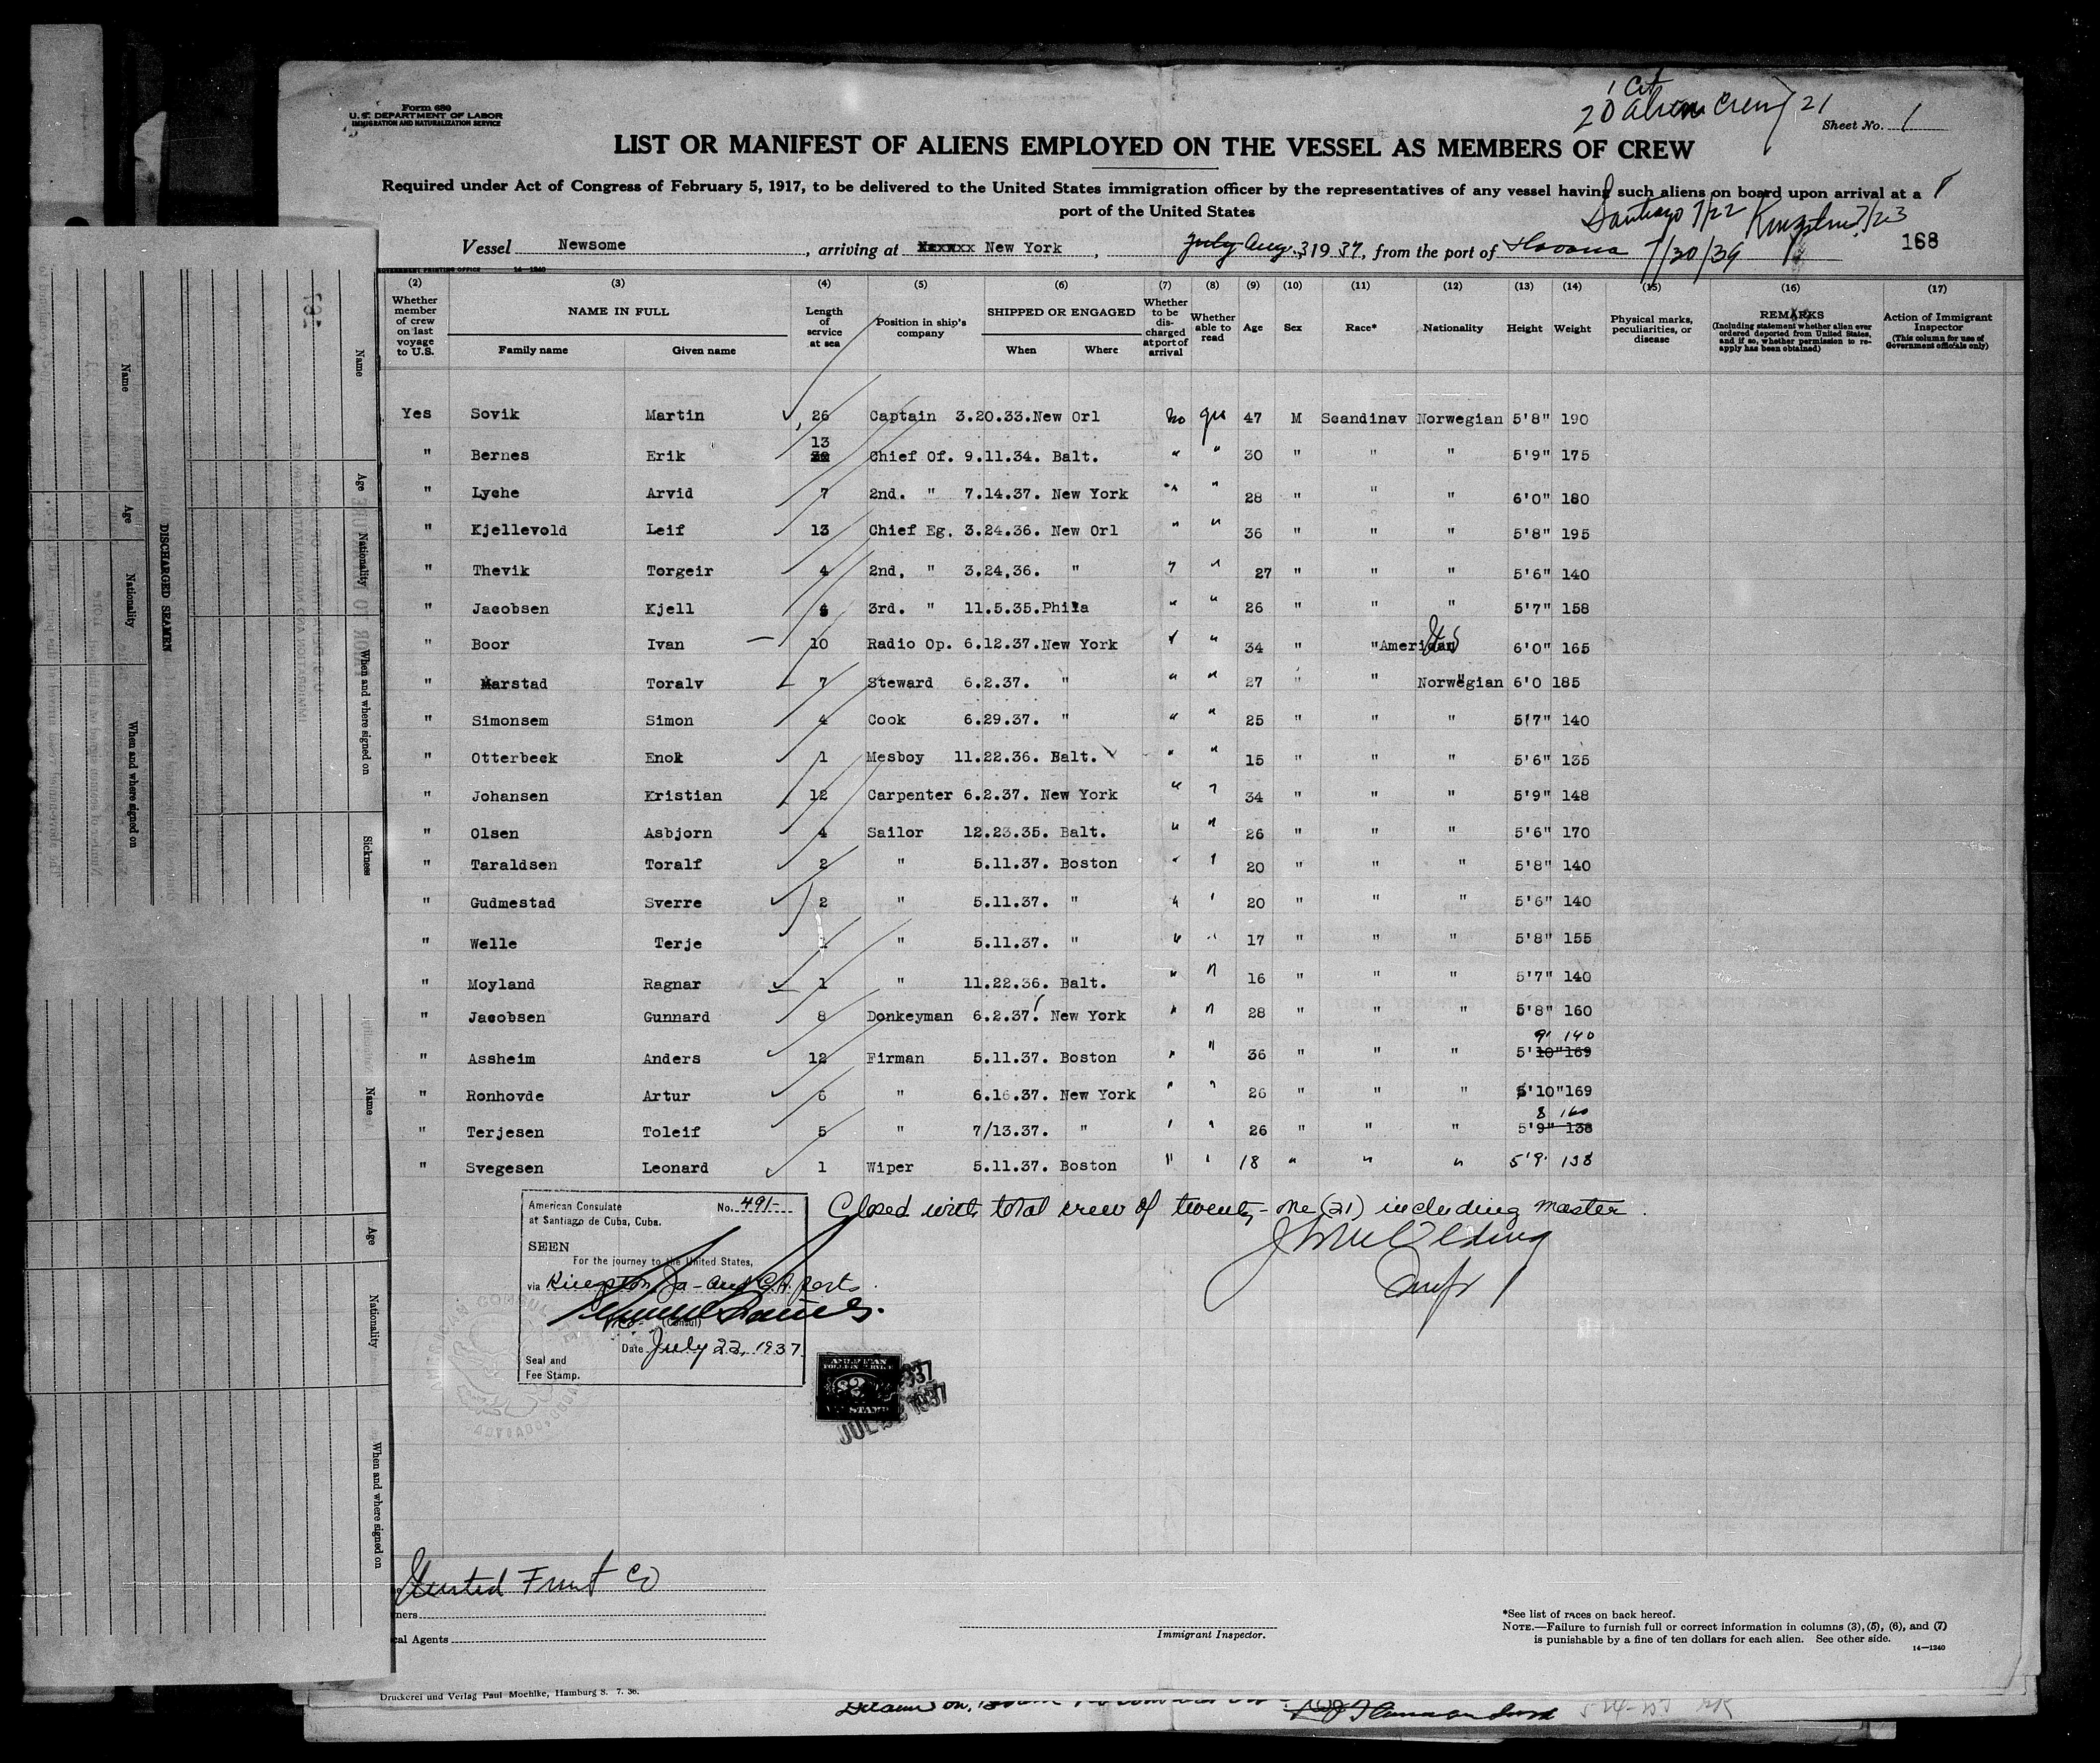 Form 680
U. S. DEPARTMENT OF LABOR
IMMIGRATION AND NATURALIZATION SERVICE
1 Cit
20 alien crew 21
Sheet No. 1
LIST OR MANIFEST OF ALIENS EMPLOYED ON THE VESSEL AS MEMBERS OF CREW
Required under Act of Congress of February 5, 1917, to be delivered to the United States immigration officer by the representatives of any vessel having such aliens on board upon arrival at a
port of the United States
Santiago 7/22 Kingston 7/23
Vessel Newsome, arriving at New York, July Aug. 3 1937, from the port of Havana 7/30/39
168
GOVERNMENT PRINTING OFFICE 14—1240
(2) (3) (4) (5) (6) (7) (8) (9) (10) (11) (12) (13) (14) (15) (16) (17)
Whether member of crew on last voyage to U.S.
NAME IN FULL
Family name Given name
Length of service at sea
Position in ship's company
SHIPPED OR ENGAGED
When Where
Whether to be discharged at port of arrival
Whether able to read
Age Sex Race* Nationality Height Weight
Physical marks, peculiarities, or disease
REMARKS
(Including statement whether alien ever ordered deported from United States, and if so, whether permission to re-apply has been obtained)
Action of Immigrant Inspector
(This column for use of Government officials only)
Yes Sovik Martin 26 Captain 3.20.33.New Orl No yes 47 M Scandinav Norwegian 5'8" 190
" Bernes Erik 13 Chief Of. 9.11.34. Balt. " " 30 " " " 5'9" 175
" Lyche Arvid 7 2nd. " 7.14.37. New York " " 28 " " " 6'0" 180
" Kjellevold Leif 13 Chief Eg. 3.24.36. New Orl " " 36 " " " 5'8" 195
" Thevik Torgeir 4 2nd. " 3.24.36. " " " 27 " " " 5'6" 140
" Jacobsen Kjell 3rd. " 11.5.35.Phila " " 26 " " " 5'7" 158
" Boor Ivan 10 Radio Op. 6.12.37.New York " " 34 " " American US 6'0" 165
" Marstad Toralv 7 Steward 6.2.37. " " " 27 " " Norwegian 6'0 185
" Simonsem Simon 4 Cook 6.29.37. " " " 25 " " " 5'7" 140
" Otterbeck Enok 1 Mesboy 11.22.36. Balt. " " 15 " " " 5'6" 135
" Johansen Kristian 12 Carpenter 6.2.37. New York " " 34 " " " 5'9" 148
" Olsen Asbjorn 4 Sailor 12.23.35. Balt. " " 26 " " " 5'6" 170
" Taraldsen Toralf 2 " 5.11.37. Boston " " 20 " " " 5'8" 140
" Gudmestad Sverre 2 " 5.11.37. " " " 20 " " " 5'6" 140
" Welle Terje 1 " 5.11.37. " " " 17 " " " 5'8" 155
" Moyland Ragnar 1 " 11.22.36. Balt. " " 16 " " " 5'7" 140
" Jacobsen Gunnard 8 Donkeyman 6.2.37. New York " " 28 " " " 5'8" 160
9" 140
" Assheim Anders 12 Firman 5.11.37. Boston " " 36 " " " 5'10"169
" Ronhovde Artur 6 " 6.16.37. New York " " 26 " " " 5'10"169
8 160
" Terjesen Toleif 5 " 7/13.37. " " " 26 " " " 5'9" 138
" Svegesen Leonard 1 Wiper 5.11.37. Boston " " 18 " " " 5'9" 138
American Consulate No. 491-
at Santiago de Cuba, Cuba.
SEEN
For the journey to the United States,
via Kingston, Ja - and C.A. ports.
(Consul)
Date July 22, 1937
Seal and
Fee Stamp.
Closed with total crew of twenty-one (21) including master.
AMERICAN
FOREIGN SERVICE
2
FEE STAMP
1937
JUL 1937
United Fruit Co
ners
cal Agents
Immigrant Inspector.
*See list of races on back hereof.
NOTE.—Failure to furnish full or correct information in columns (3), (5), (6), and (7)
is punishable by a fine of ten dollars for each alien. See other side.
14—1240
Druckerei und Verlag Paul Moehlke, Hamburg 8. 7. 36.
DISCHARGED SEAMEN
Name Age Nationality When and where signed on
Name Age Nationality When and where signed on Sickness
Name Age Nationality When and where signed on